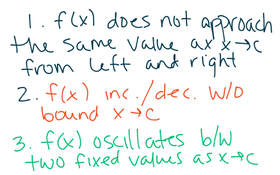 1. f(x) does not approach
the same value ax x→c
from left and right
2. f(x) inc./dec. w/o
bound x→c
3. f(x) oscillates b/w
two fixed values as x→c